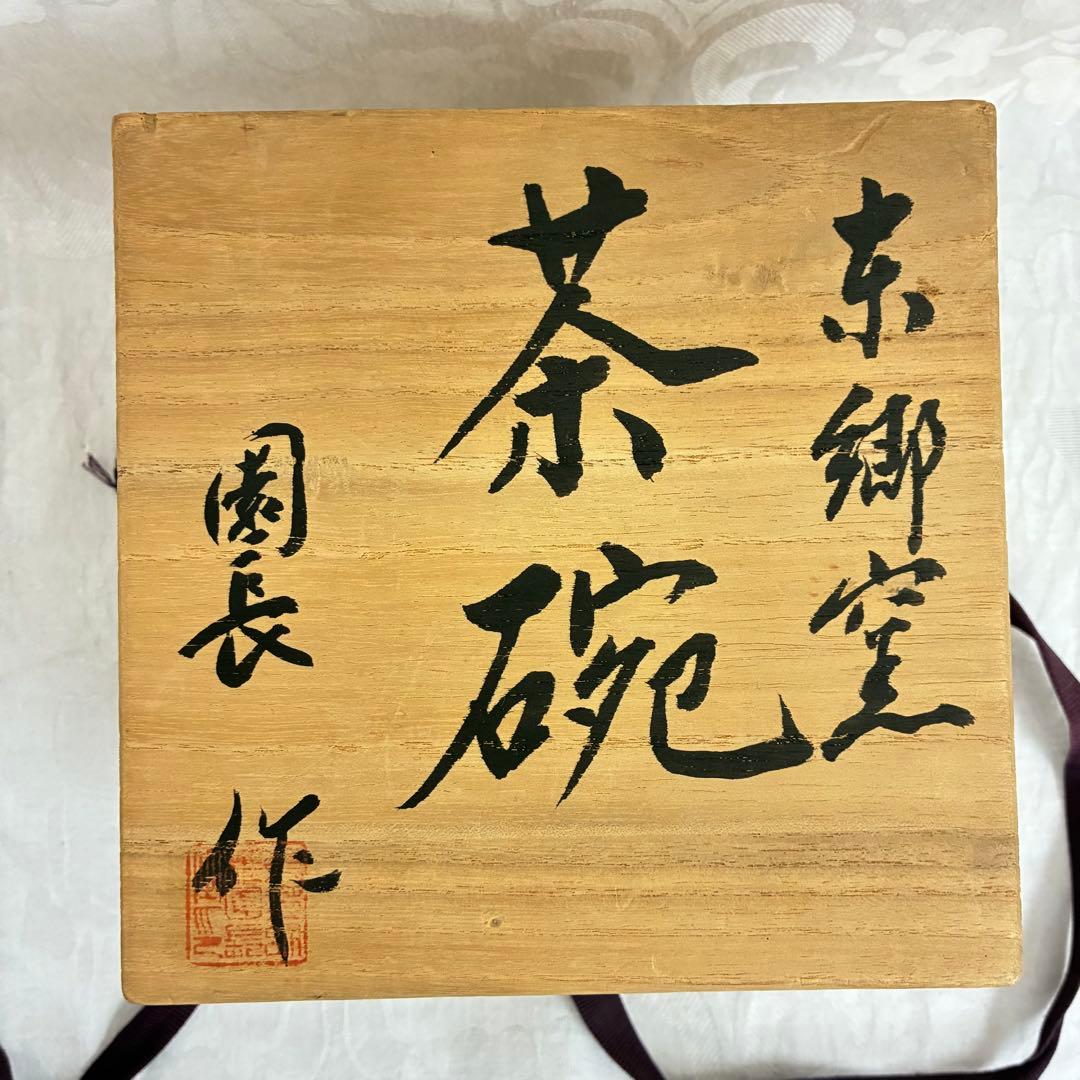 东郷窯
茶碗
園長作